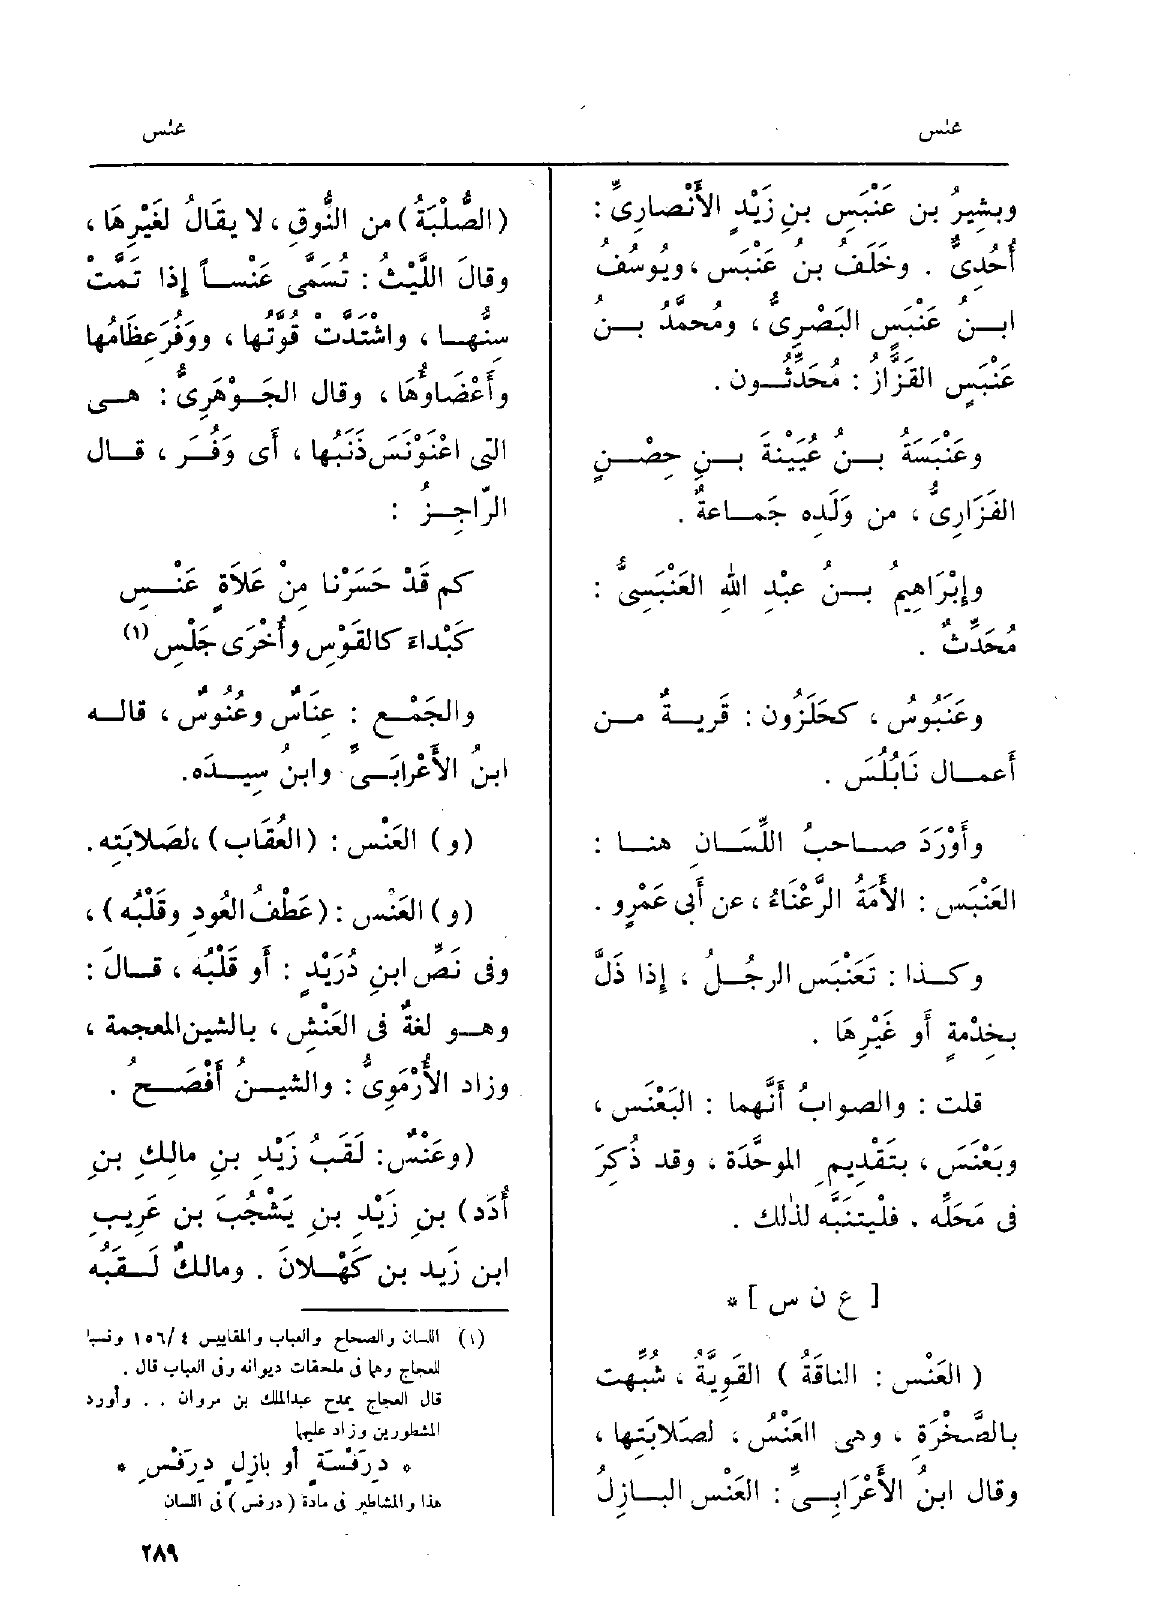 عنس
عنس
وبشِيرُ بن عَنْبَسِ بنِ زَيْدٍ الأَنْصارِىُّ :
أُحُدِىٌّ . وخَلَفُ بن عَنْبَس ، ويُوسُفُ
ابنُ عَنْبَسٍ البَصْرِىُّ ، ومُحمَّدُ بن
عَنْبَسٍ القَزَّازُ : مُحَدِّثُون .
وعَنْبَسَةُ بنُ عُيَيْنَةَ بنِ حِصْنٍ
الفَزَارِىُّ ، من وَلَدِه جَمَاعةٌ .
وإِبْرَاهِيمُ بنُ عبْدِ اللهِ العَنْبَسِىُّ :
مُحَدِّثٌ .
وعَنَبُوسُ ، كحَلَزُون : قريةٌ من
أَعمال نَابُلُسَ .
وأَوْرَدَ صاحبُ اللِّسَانِ هنا :
العَنْبَس : الأَمَةُ الرَّعْنَاءُ ، عن أَبى عَمْرٍو .
وكذا : تَعَنْبَس الرجُلُ ، إِذا ذَلَّ
بخِدْمةٍ أَو غَيْرِهَا .
قلت : والصوابُ أَنَّهما : البَعْنَس ،
وبَعْنَسَ ، بتَقْدِيمِ الموحَّدَة ، وقد ذُكِرَ
فى مَحَلِّه . فليتنَبَّه لذلك .
[ ع ن س ] *
( العَنْس : الناقَةُ ) القَوِيَّةُ ، شُبِّهت
بالصَّخْرَةِ ، وهى العَنْسُ ، لصَلابَتِها ،
وقال ابنُ الأَعْرَابِىِّ : العَنْس البازِلُ
(الصُّلْبَةُ) من النُّوق ، لا يقَالُ لغَيْرِهَا ،
وقالَ اللَّيْثُ : تُسَمَّى عَنْساً إِذا تَمَّتْ
سِنُّها ، واشْتَدَّتْ قُوَّتُها ، ووَفَرَ عِظَامُها
وأَعْضَاوُها ، وقال الجَوْهَرِىُّ : هى
التى اعْنَوْنَسَ ذَنَبُها ، أَى وَفُرَ ، قال
الرّاجِزُ :
كم قَدْ حَسَرْنا مِنْ عَلاَةٍ عَنْسِ
كَبْداءَ كالقَوْسِ وأُخْرَى جَلْسِ (١)
والجَمْع : عِنَاسٌ وعُنُوسٌ ، قاله
ابنُ الأَعْرابىِّ وابنُ سِيدَه.
(و) العَنْس : (العُقَاب) ،لصَلابَتِه.
(و) العَنْس : (عَطْفُ العُودِ وقَلْبُه) ،
وفى نَصِّ ابنِ دُرَيْدٍ : أَو قَلْبُه ، قالَ :
وهو لغةٌ فى العَنْشِ ، بالشين المعجمة ،
وزاد الأُرْمَوِىُّ : والشينُ أَفْصَحُ .
(وعَنْسٌ : لَقَبُ زَيْدِ بنِ مالِكِ بنِ
أُدَد) بنِ زَيْدِ بنِ يَشْجُبَ بنِ عَرِيبِ
ابن زَيد بن كَهْلانَ . ومالكٌ لَقَبُه
(١) اللسان والصحاح والعباب والمقاييس ٤ /١٥٦ ونسبا
للعجاج وهما فى ملحقات ديوانه وفى العباب قال .
قال العجاج يمدح عبدالملك بن مروان . . وأورد
المشطورين وزاد عليهما
* دِرَفْسَةٍ أو بازِلٍ دِرَفْسِ *
هذا والمشاطير فى مادة ( درفس ) فى اللسان
٢٨٩